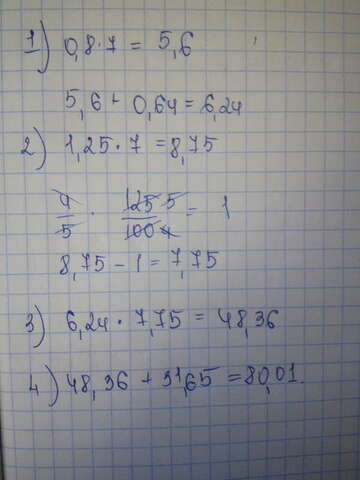 1) 0,8·7 = 5,6
5,6 + 0,64 = 6,24
2) 1,25·7 = 8,75
4/5 · 125 5/100 4 = 1
8,75 - 1 = 7,75
3) 6,24 · 7,75 = 48,36
4) 48,36 + 31,65 = 80,01.